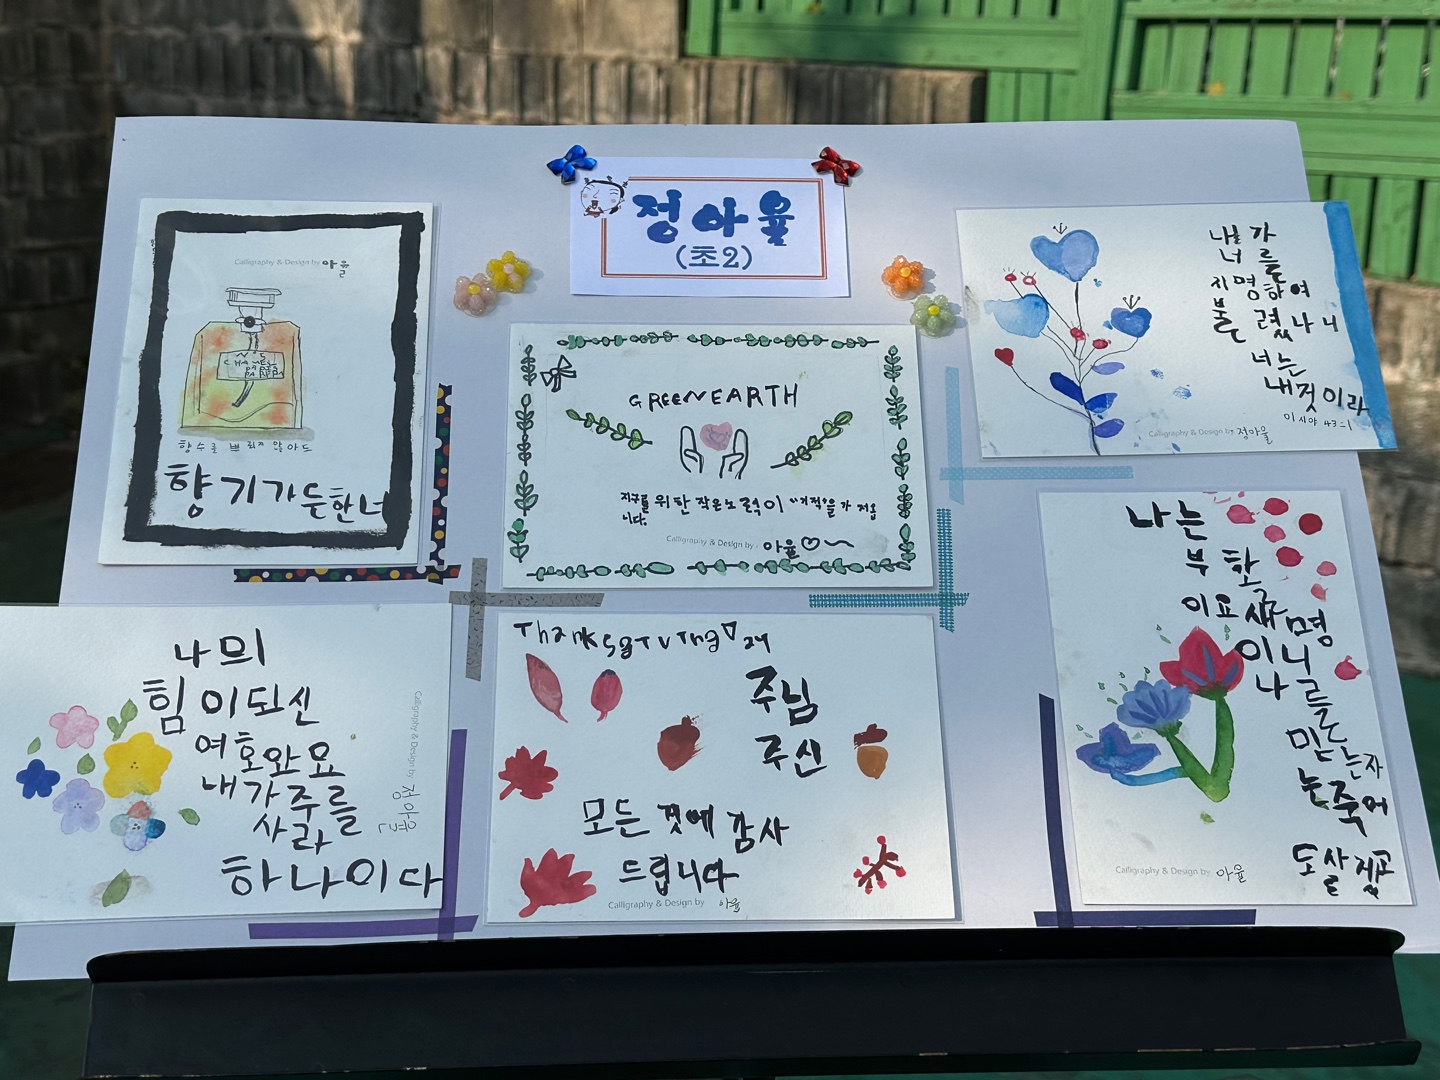 정아율
(초2)
Calligraphy & Design by 아율
N°5
향수를 뿌리지 않아도
향기가득한너
GREEN EARTH
지구를 위한 작은노력이 "기적"을 가져옵
니다.
Calligraphy & Design by 아율♡
내가
너를
지명하여
불렀나니
너는
내것이라
이사야 43:1
Calligraphy & Design by 정아율
나의
힘이되신
여호와요
내가주를
사랑
하나이다
Calligraphy & Design by 정아율
Thanksgiving Day
주님
주신
모든 것에 감사
드립니다
Calligraphy & Design by 아율
나는
부활
이요 생명
이니
나를
믿는자
는죽어
도살겠고
Calligraphy & Design by 아율